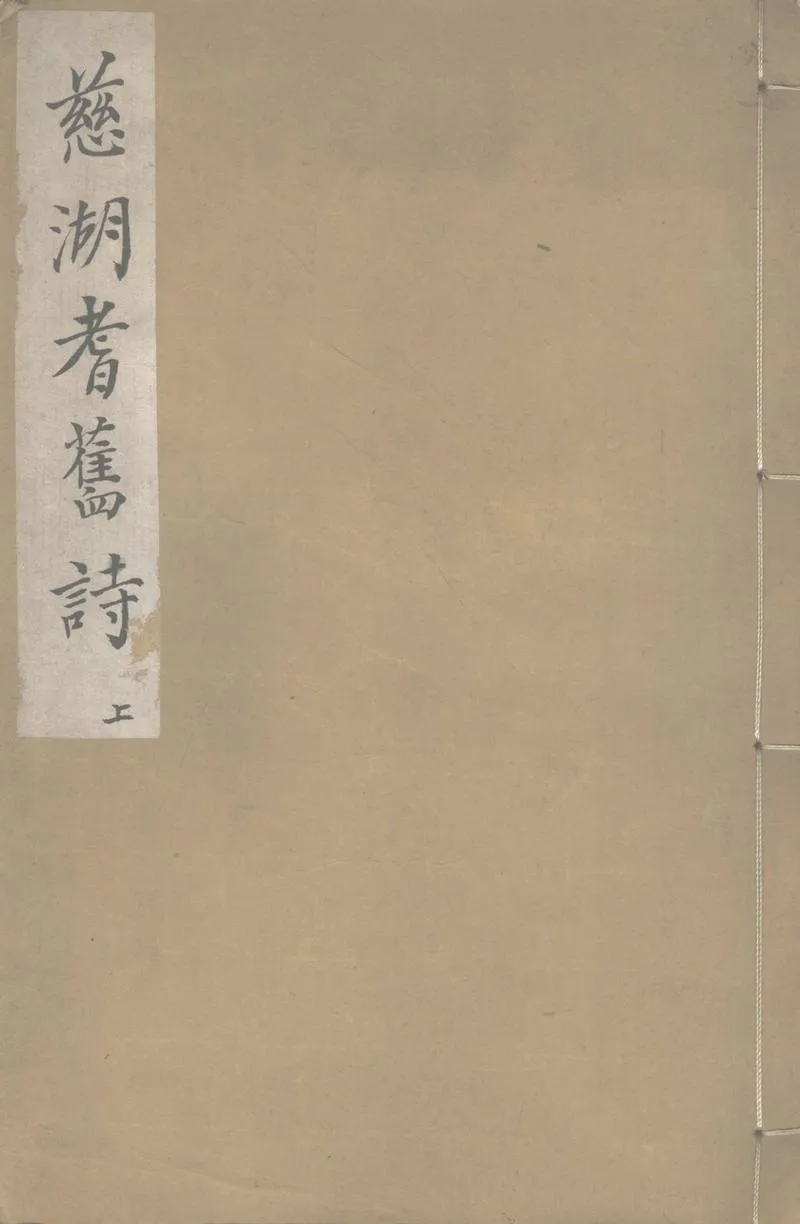 慈湖耆舊詩
上